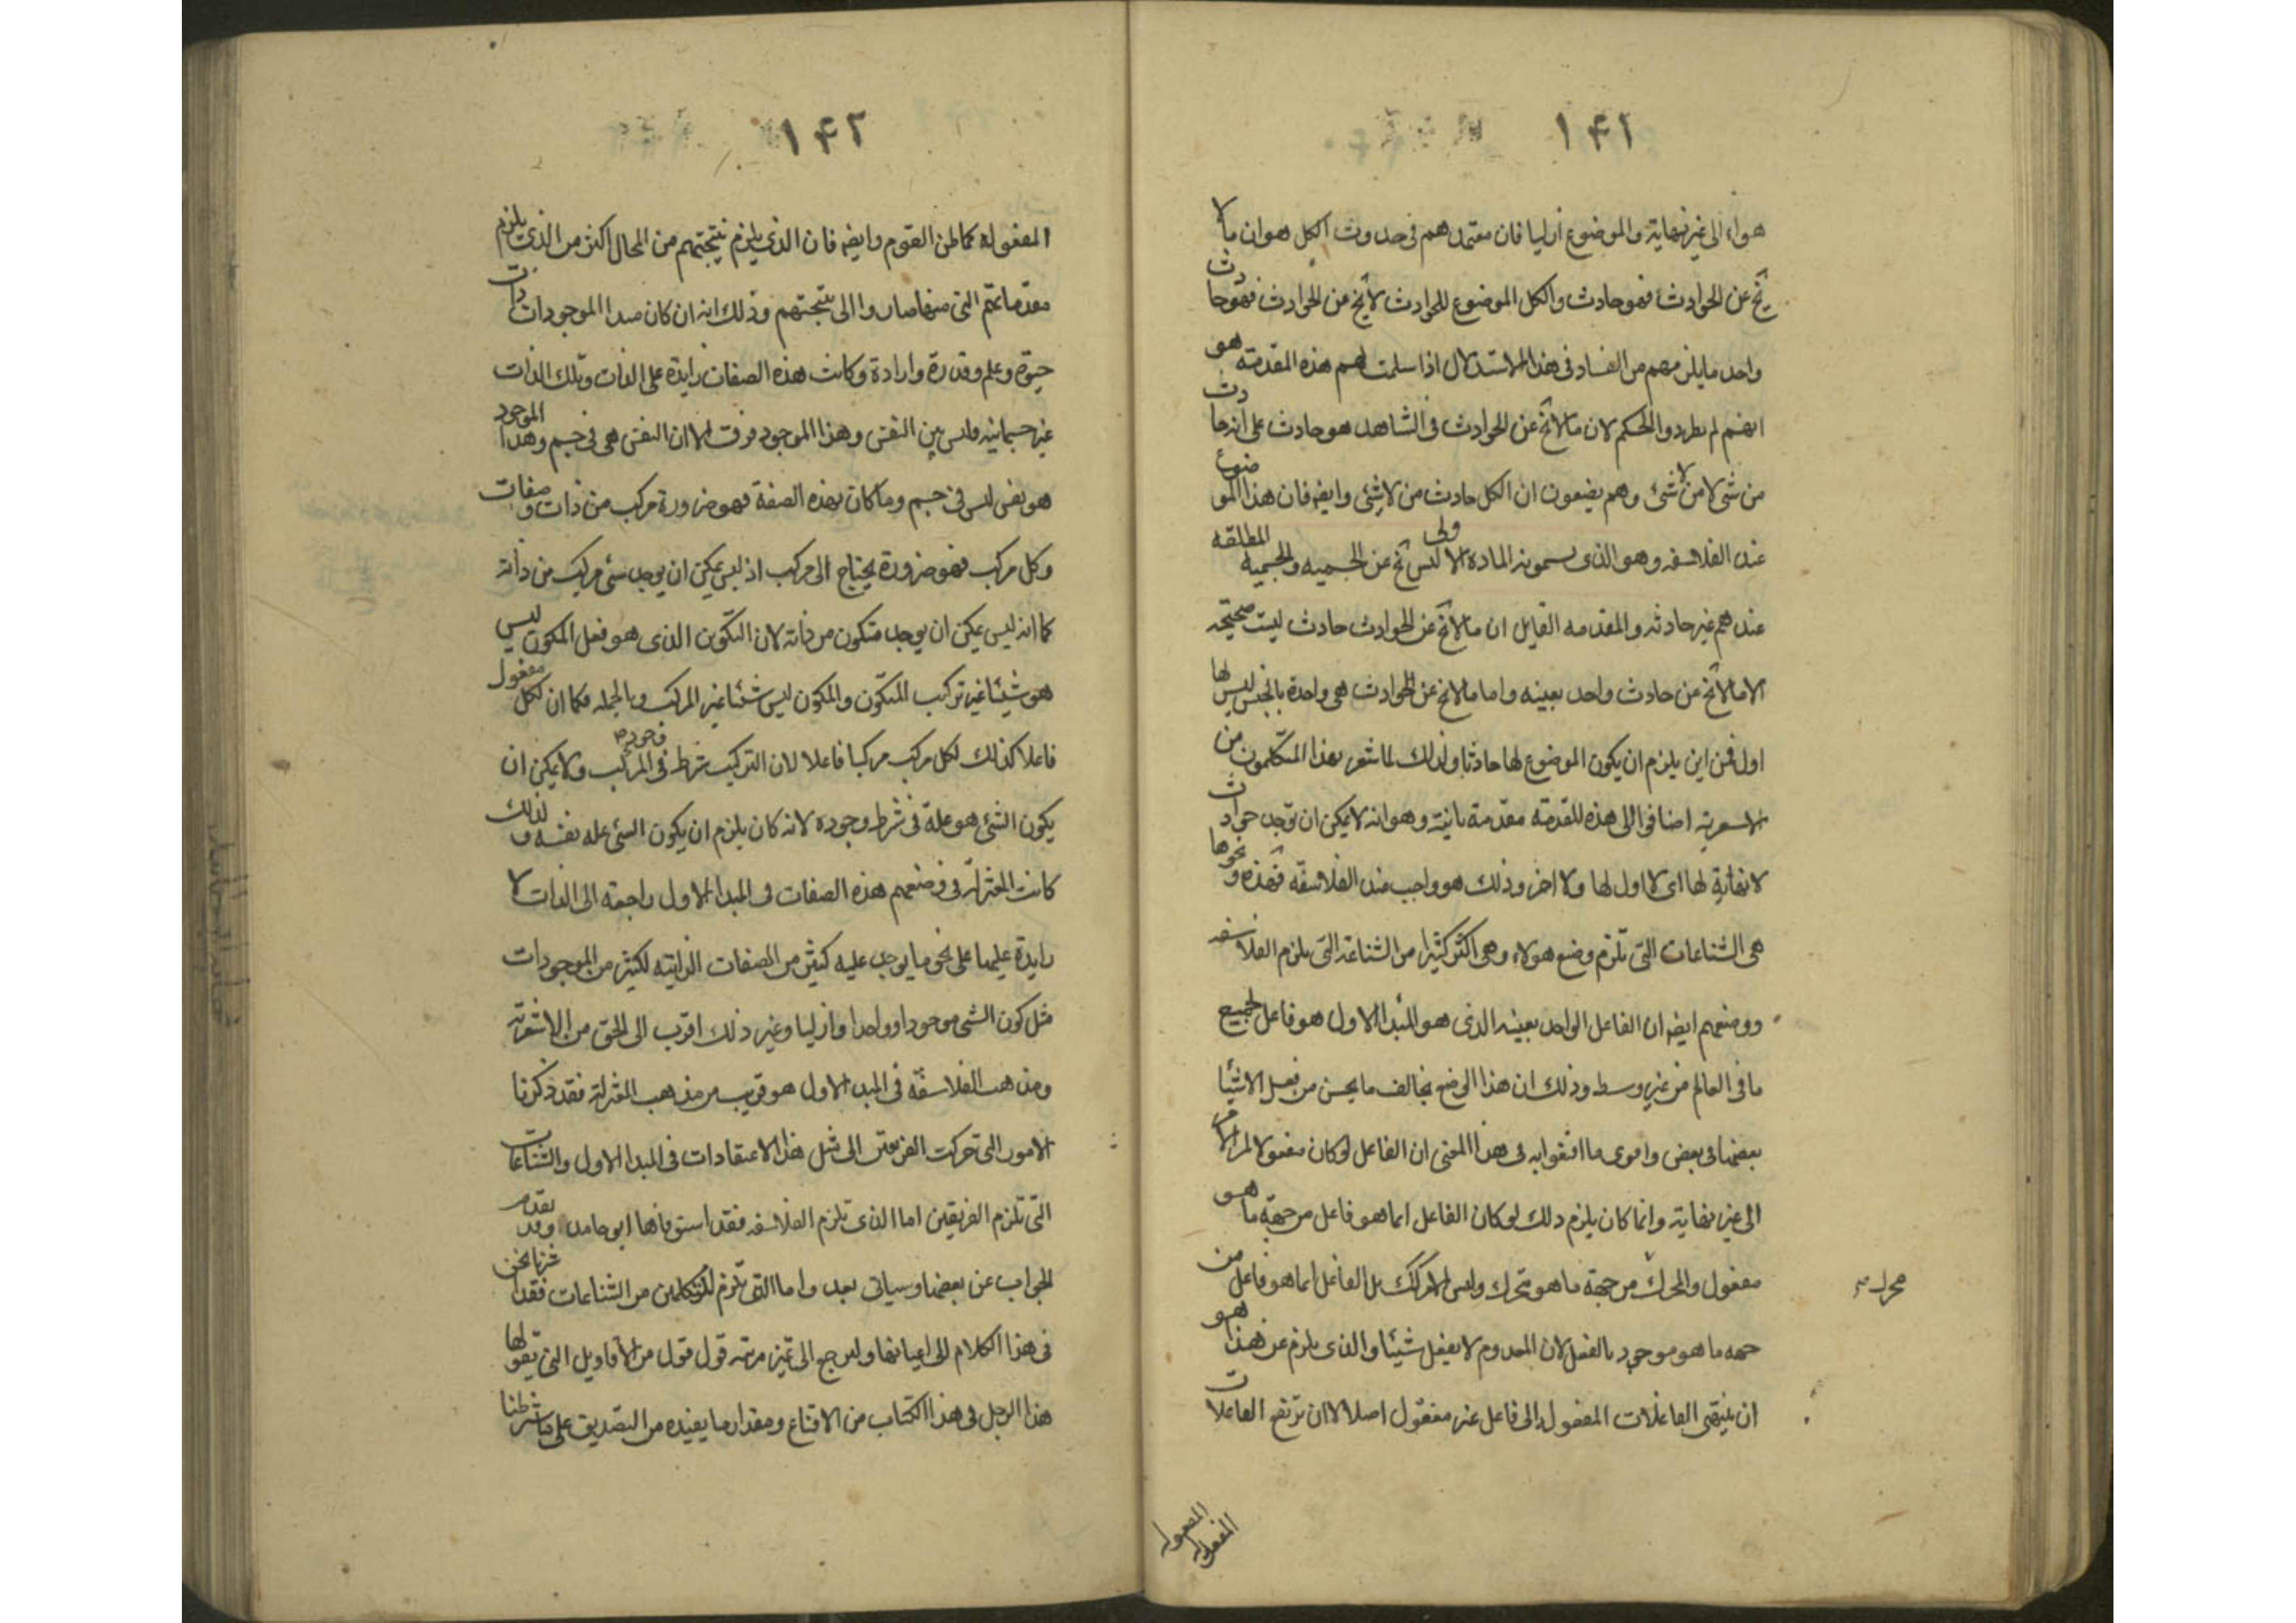 ١٤١
هواء الى غير نهاية والموضوع ازليا فان معتمدهم فى حدوث الكل هو ان ما لا
يخ عن الحوادث فهو حادث والكل الموضوع للحوادث لا يخ من الحوادث فهو حادث
واحد ما يلزمهم من الفساد فى هذا الاستدلال اذا سلمت لهم هذه المقدمة هو
انهم لم يطردوا الحكم لان ما لا يخ عن الحوادث فى الشاهد هو حادث على انه حادث
من شئ لا من لا شئ وهم يضعون ان الكل حادث من لا شئ وايضه فان هذا الموضوع
عند الفلاسفه وهو الذى يسمونه المادة الاولى ليس يخ عن الجسميه والجسميه المطلقه
عندهم غير حادثه والمقدمه القايل ان ما لا يخ عن الحوادث حادث ليست صحيحه
الا ما لا يخ من حادث واحد بعينه واما ما لا يخ عن الحوادث هى واحدة بالجنس ليس لها
اول فمن اين يلزم ان يكون الموضوع لها حادثا ولذلك لما شعر بهذا المتكلمون من
الاسعريه اضافوا الى هذه المقدمة مقدمة ثانية وهو انه لا يمكن ان توجد حوادث
لا نهاية لها اى لا اول لها ولا اخر وذلك هو واجب عند الفلاسفه فهذه ونحوها
هى الشناعات التى تلزم وضع هولاء وهى اكثر كثيرا من الشناعة التى يلزم الفلاسفه
ووضعهم ايضه ان الفاعل الواحد بعينه الذى هو المبدا الاول هو فاعل لجميع
ما فى العالم من غير وسط وذلك ان هذا الوضع يخالف ما يحس من فعل الاشيا
بعضها فى بعض واقوى ما اقنعوا به فى هذا المعنى ان الفاعل لو كان مفعولا لمر الامر
الى غير نهاية وانما كان يلزم ذلك لو كان الفاعل انما هو فاعل من جهة ما هو
مفعول والمحرك من جهة ما هو متحرك وليس الامر كك بل الفاعل انما هو فاعل من
محرك
جهه ما هو موجود بالفعل لان المعدوم لا يفعل شيئا والذى يلزم عن هذا هو
ان ينتهى الفاعلات المفعوله الى فاعل غير مفعول اصلا لا ان ترتفع الفاعلات
المفعوله
المفعوله
١٤٢
المفعوله كما ظن القوم وايضه فان الذى يلزم نتيجتهم من المحال اكثر من الذى يلزم
مقدماتهم التى منها صاروا الى نتيجتهم وذلك انه ان كان مبدا الموجودات ذات
حيوة وعلم وقدرة وارادة وكانت هذه الصفات زايدة على الذات وتلك الذات
غير جسمانيه وليس بين النفس وهذا الموجود فرق الا ان النفس هى فى جسم وهذا الموجود
هو نفس ليس فى جسم وما كان بهذه الصفة فهو ضرورة مركب من ذات وصفات
وكل مركب فهو ضرورة يحتاج الى مركب اذ ليس يمكن ان يوجد شئ مركب من ذاته
كما انه ليس يمكن ان يوجد متكون من ذاته لان التكوين الذى هو فعل المكون ليس
هو شيئا غير تركيب المتكون والمكون ليس شيئا غير المركب وبالجمله فكما ان لكل مفعول
فاعلا كذلك لكل مركب مركبا فاعلا لان التركيب شرط فى وجود المركب ولا يمكن ان
يكون الشئ هو علة فى شرط وجوده لانه كان يلزم ان يكون الشئ عله نفسه ولذلك
كانت المعتزلة فى وضعهم هذه الصفات فى المبدا الاول راجعة الى الذات لا
زايدة عليها على نحو ما يوجد عليه كثير من الصفات الذاتيه لكثير من الموجودات
مثل كون الشى موجودا وواحدا وازليا وغير ذلك اقرب الى الحق من الاشعرية
ومذهب الفلاسفه فى المبدا الاول هو قريب من مذهب المعتزلة فقد ذكرنا
الامور التى حركت الفريقين الى مثل هذا الاعتقادات فى المبدا الاول والشناعات
التى تلزم الفريقين اما الذى تلزم الفلاسفه فقد استوفاها ابو حامد وقد تقدم
الجواب عن بعضها وسياتى بعد واما التى تلزم المتكلمين من الشناعات فقد اشرنا نحن
فى هذا الكلام الى اعيانها ولنرجع الى تمييز مرتبه قول قول من الاقاويل التى يقولها
هذا الرجل فى هذا الكتاب من الاقناع ومقدار ما يفيده من التصديق على ما شرطنا